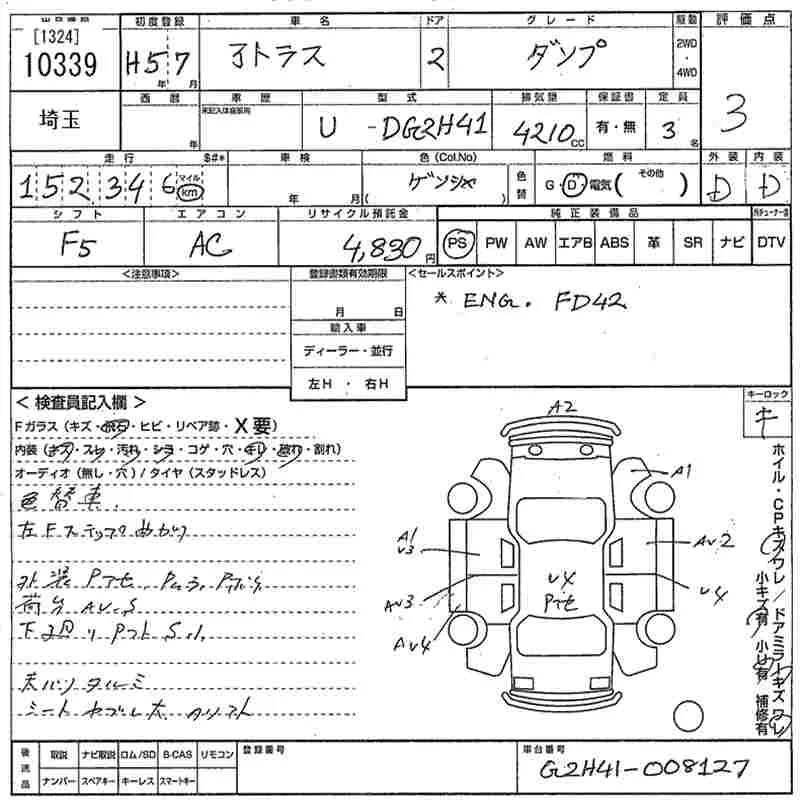 [1324]
10339
初度登録
H5 7
年 月
車名
アトラス
ドア
2
グレード
ダンプ
駆動
2WD
・
4WD
評価点
3
埼玉
西暦
年
車歴
未記入は自家用
型式
U -DG2H41
排気量
4210 CC
保証書
有・無
定員
3 名
走行
$#*
152,346
マイル
km
車検
年 月(
色(Col.No)
ゲンショク
)
色替
燃料
G・D・電気( その他 )
外装
D
内装
D
シフト
F5
エアコン
AC
リサイクル預託金
4,830 円
純正装備品
PS PW AW エアB ABS 革 SR ナビ
DTV
<注意事項>
登録書類有効期限
月 日
輸入車
ディーラー・並行
左H ・ 右H
<セールスポイント>
* ENG. FD42
< 検査員記入欄 >
Fガラス(キズ・飛石・ヒビ・リペア跡・X要)
内装(キズ・スレ・汚れ・シミ・コゲ・穴・キレ・破れ・割れ)
オーディオ(無し・穴)/タイヤ(スタッドレス)
色替車.
左Fステップ曲がり
外装 Pアセ
荷台 AU.S
下廻り Pフト S
天バリ タルミ
シート ヤブレ大
キーロック
キ
A2
A1
A1
U3
AU3
AU4
AU2
U4
U4
Pアセ
ホイル・CPキズワレ/ドアミラーキズワレ
小キズ有 小U有 補修有
後送品
取説 ナビ取説 ロム/SD B-CAS リモコン
ナンバー スペアキー キーレス スマートキー
登録番号
車台番号
G2H41-008127